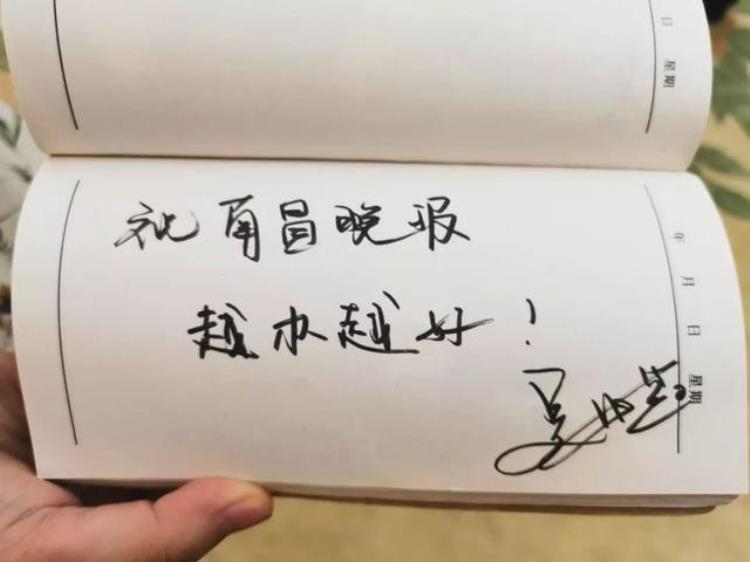 日 星期
祝南昌晚报
越办越好！
年 月 日 星期